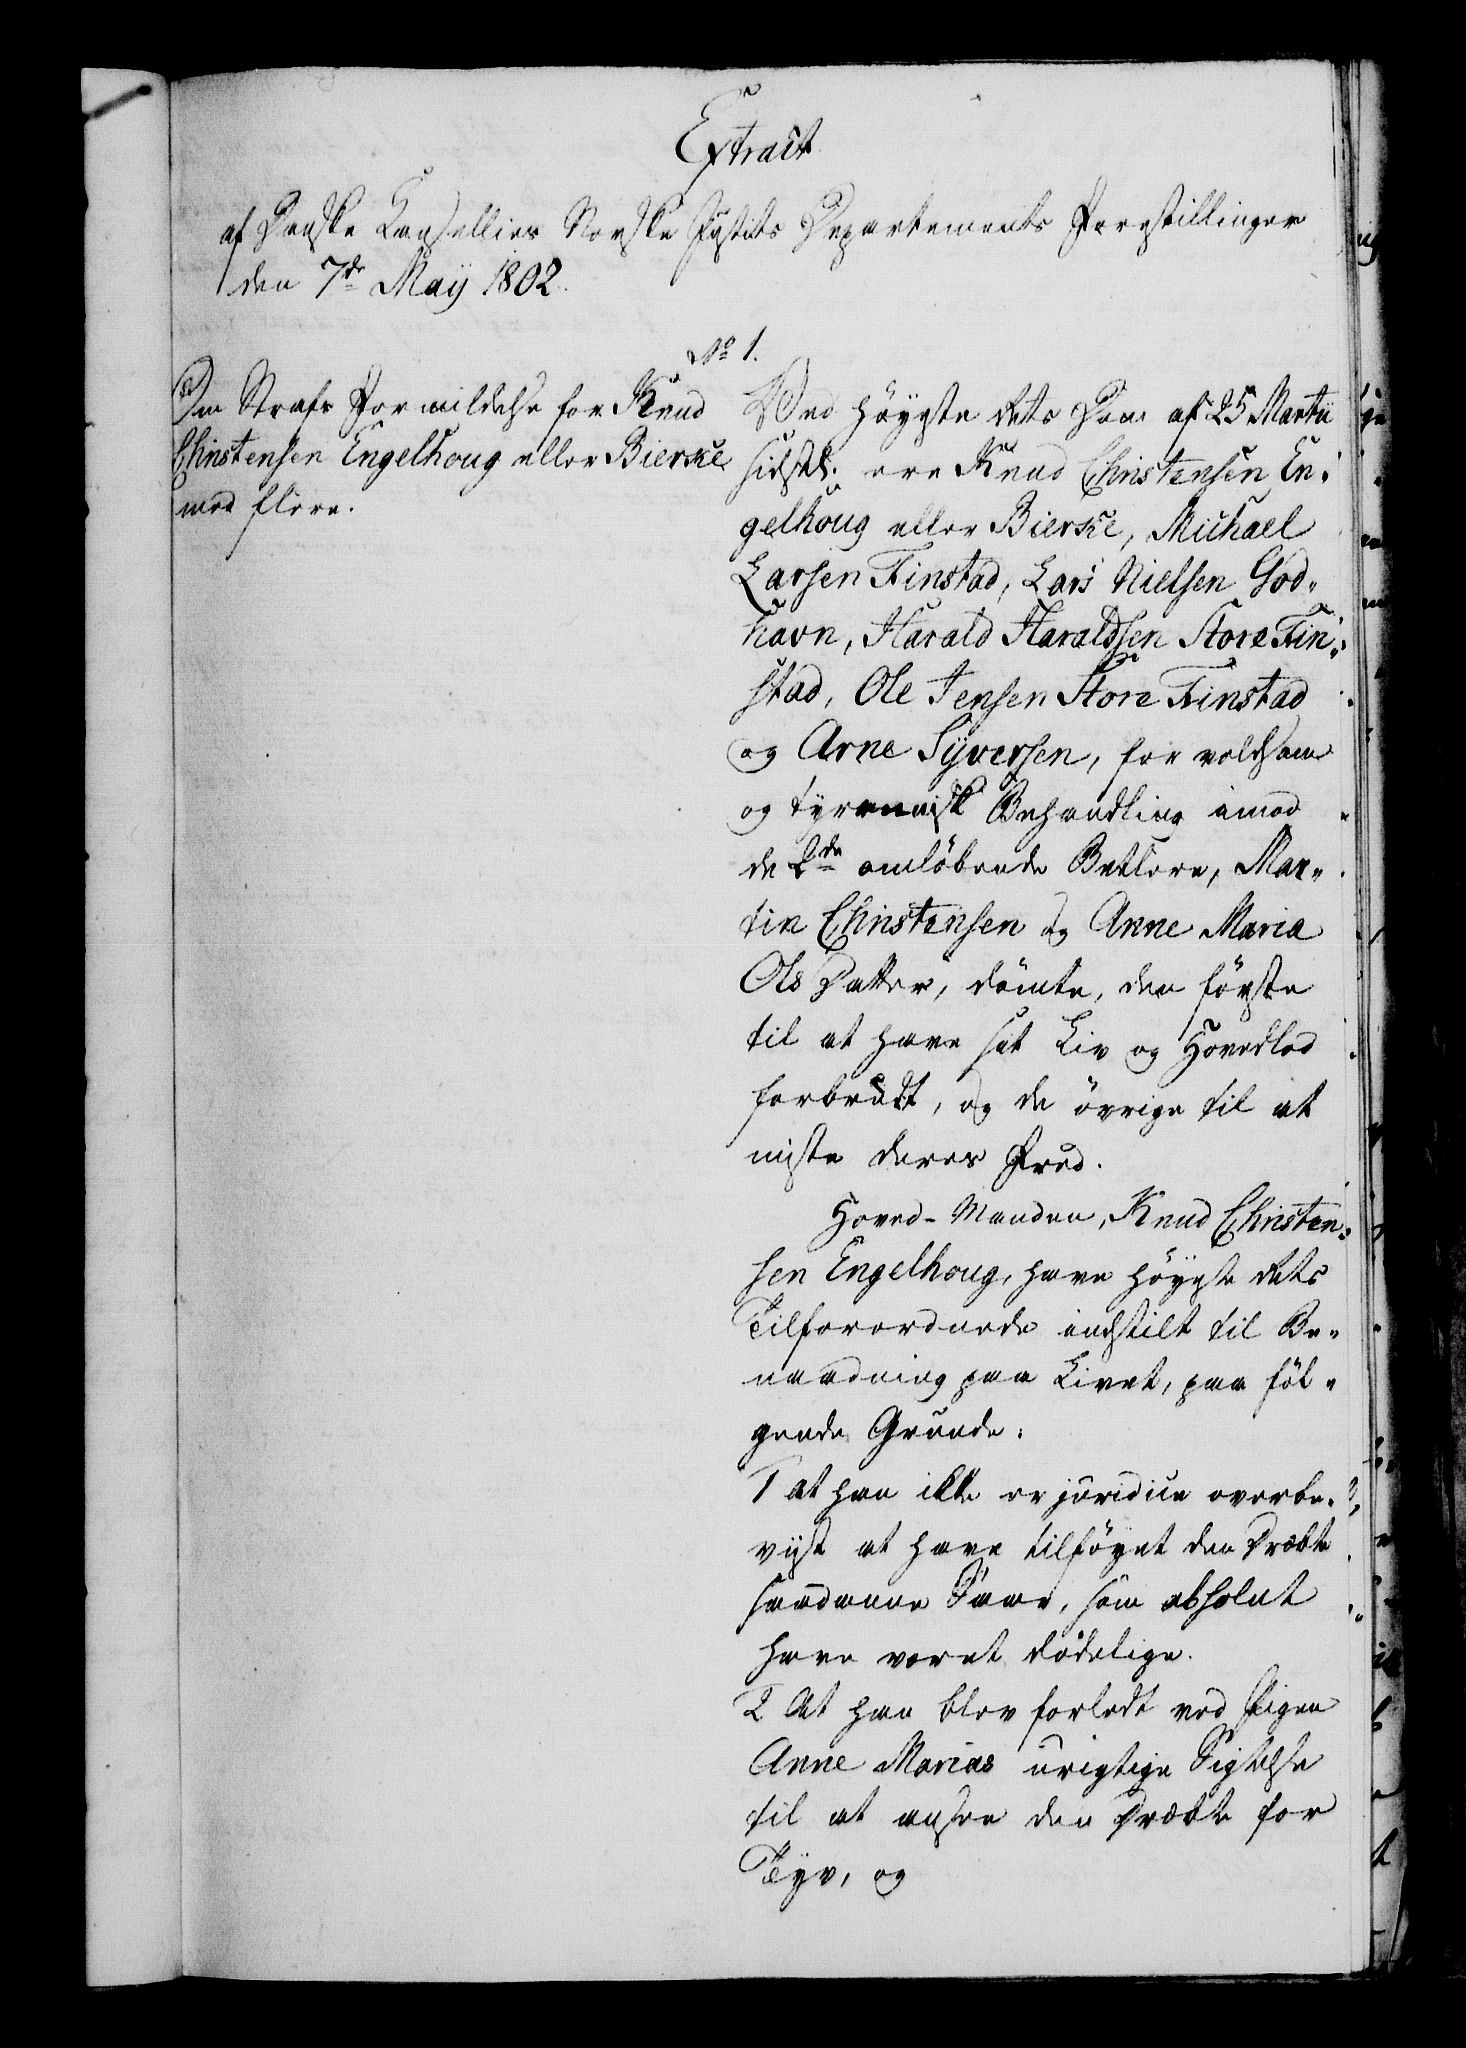 Extract
af Danske Cancellies Norske Justits Departements Forestillinger
den 7de Maij 1802.
No 1.
Om Strafs Formildelse for Knud
Christensen Engelhoug eller Bierke
med flere.
Ved Höyeste Rets Dom af 25 Martii
sidstl. ere Knud Christensen En-
gelhoug eller Bierke, Michael
Larsen Finstad, Lars Nielsen God-
havn, Harald Haraldsen Store Fin-
stad, Ole Jensen Store Finstad
og Arne Syversen, for voldsom
og tyrannisk Behandling imod
de 2de omlöbende Betlere, Mar-
tin Christensen og Anne Maria
Ols Datter, dömte, den förste
til at have sit Liv og Hovedlod
forbrudt, og de övrige til at
miste deres Fred.
Hoved-Manden, Knud Christen-
sen Engelhoug, have Höyeste Rets
Tilforordnede indstilt til Be-
naadning paa Livet, paa föl-
gende Grunde:
1 at han ikke er juridice overbe-
viist at have tilföyet den Dræbte
saadanne Saar, som absolut
have været dödelige.
2 At han blev forledt ved Pigen
Anne Marias urigtige Sigtelse
til at ansee den Dræbte for
Tyv, og